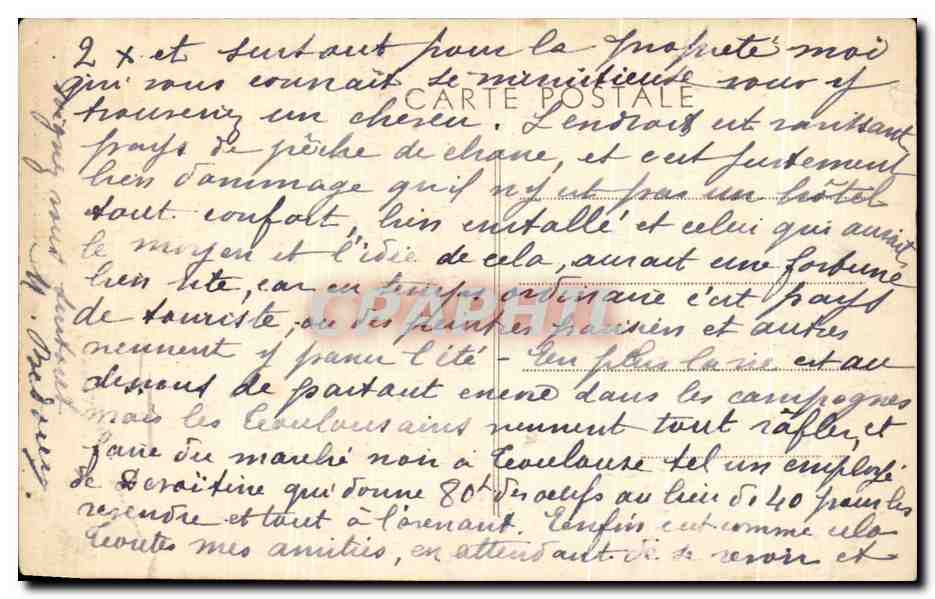 2 x et surtout pour la propreté moi
qui vous connait se minutieuse vous y
CARTE POSTALE
trouverez un cheveu. L'endroit est ravissant
pays de pêche de chasse, et c'est justement
bien dommage qu'il n'y ut pas un hôtel
tout confort, bien installé et celui qui aurait
le moyen et l'idée de cela, aurait une fortune
bien vite, car en temps ordinaire c'est pays
de touriste, ou des peintres parisiens et autres
viennent y passer l'été - En plus la vie est au
dessous de partout encore dans les campagnes
mais les Toulousains viennent tout râfler, et
faire du marché noir à Toulouse tel un employé
de qui donne 80f des oeufs au lieu de 40 pour les
revendre et tout à l'avenant. Enfin c'est comme cela
Toutes mes amitiés, en attendant de se revoir et
soignez vous surtout
CPAPHIL